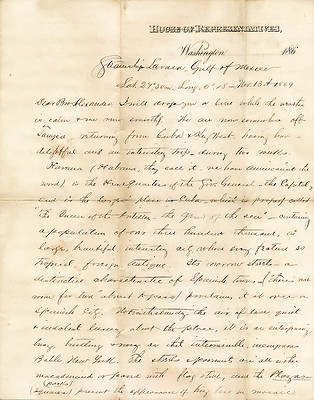 HOUSE OF REPRESENTATIVES,
Washington 186
Steamship Gulf of Mexico
Lat. 27° 30m Long. Nov. 13th 1869
Dear Bro. Alexander I will drop you a line while the weather
is calm & we run smoothly. We are now somewhere off
returning from Cuba & Key West having had a
delightful and an interesting trip during two weeks.
Havana (Habana, they call it, we have Americanized the
word) is the Head Quarters of the Gov. General — the Capital,
and is the largest place in Cuba, which is properly called
"The Queen of the Antilles — the Gem of the sea" — containing
a population of over three hundred thousand, a
large, beautiful, interesting city, where every feature is
tropical, foreign antique. Its narrow streets — a
distinctive characteristic of Spanish towns — (there are
room for two abreast to pass) proclaims it at once a
Spanish City. Notwithstanding the air of ease quiet
& indolent leisure about the place, it is an enterprising,
busy, bustling
New York. The streets & pavements are all either
macadamized or paved with flag stone, and the Plazas
(parks)
(squares) present the appearance of